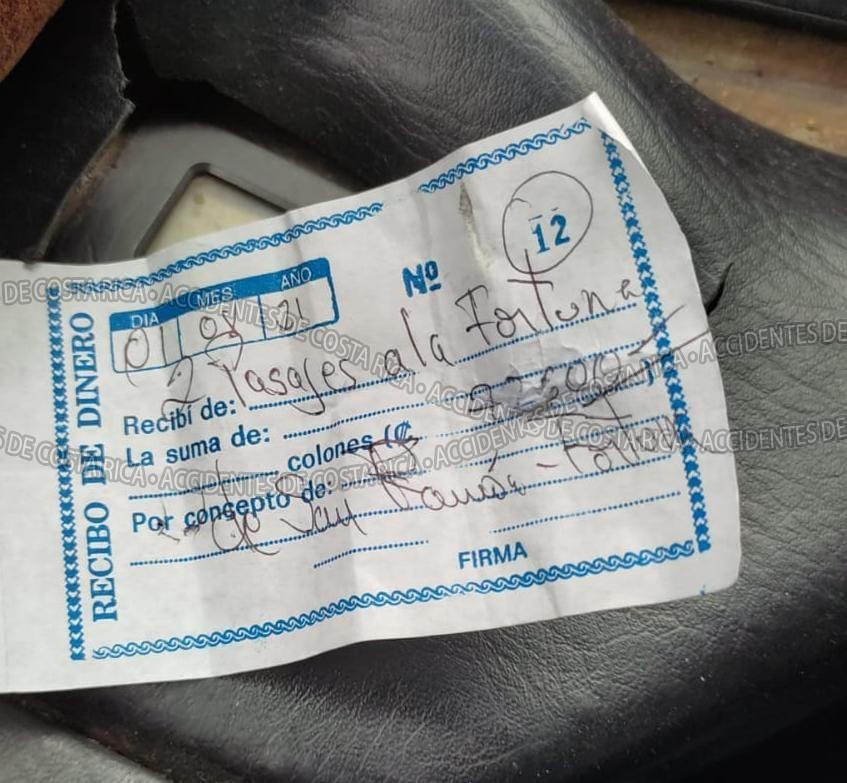 RECIBO DE DINERO
DIA MES AÑO
01 08 21
Nº 12
2 Pasajes a la Fortuna
Recibí de:
La suma de:
colones (₡ )
Por concepto de:
de San Ramón - Fortuna
FIRMA
DE COSTA RICA • ACCIDENTES DE COSTA RICA • ACCIDENTES DE
S DE COSTA RICA • ACCIDENTES DE COSTA RICA • ACCIDENTES DE COSTA RICA • ACCIDENTES DE COSTA RICA